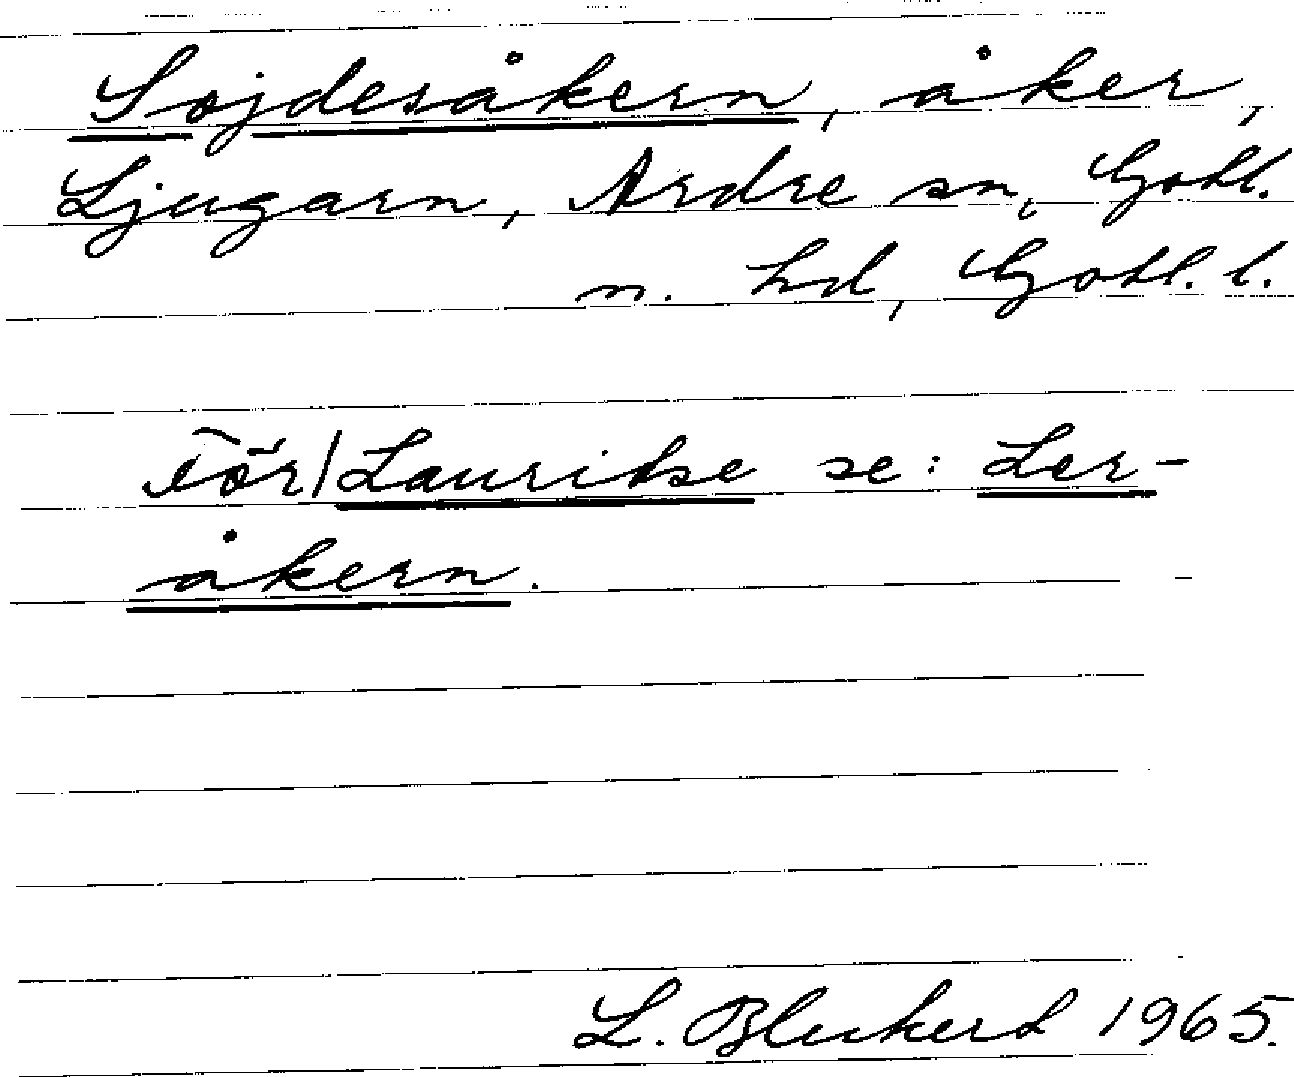 Sojdesåkern, åker,
Ljugarn, Ardre sn, Gotl.
n. hd, Gotl. l.
För/Lauritse se: Ler-
åkern.
L. Bleckert 1965.